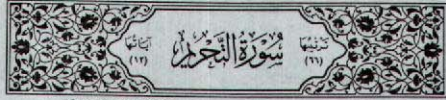 ترتيبها (٦٦) سُورَةُ التَّحْرِيمِ آياتها (١٢)